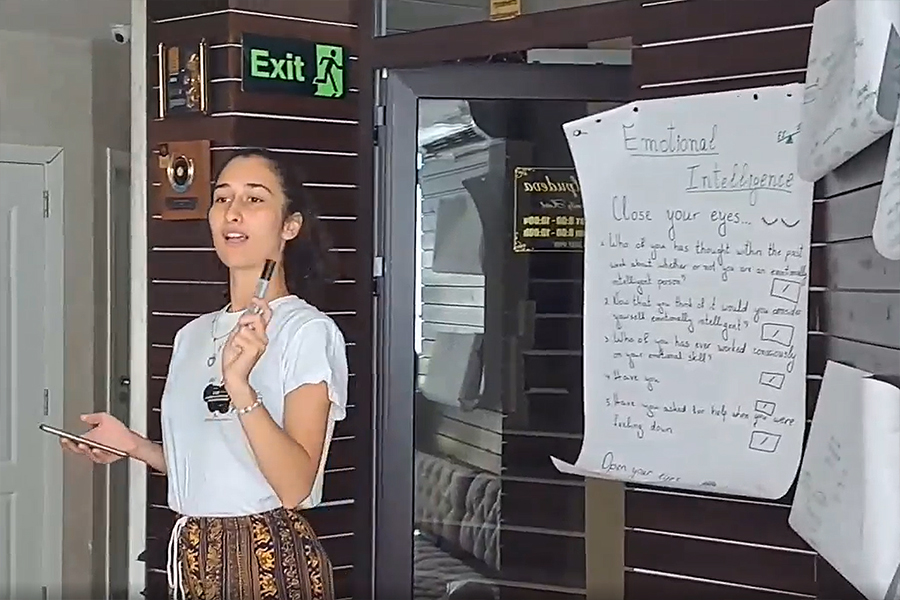 Exit
Emotional
Intelligence
Close your eyes...
1. Who of you has thought within the past
week about whether or not you are an emotionally
intelligent person?
2. Now that you think of it would you consider
yourself emotionally intelligent?
3. Who of you has ever worked consciously
on your emotional skill?
4. Have you
5. Have you asked for help when you were
feeling down
Open your eyes